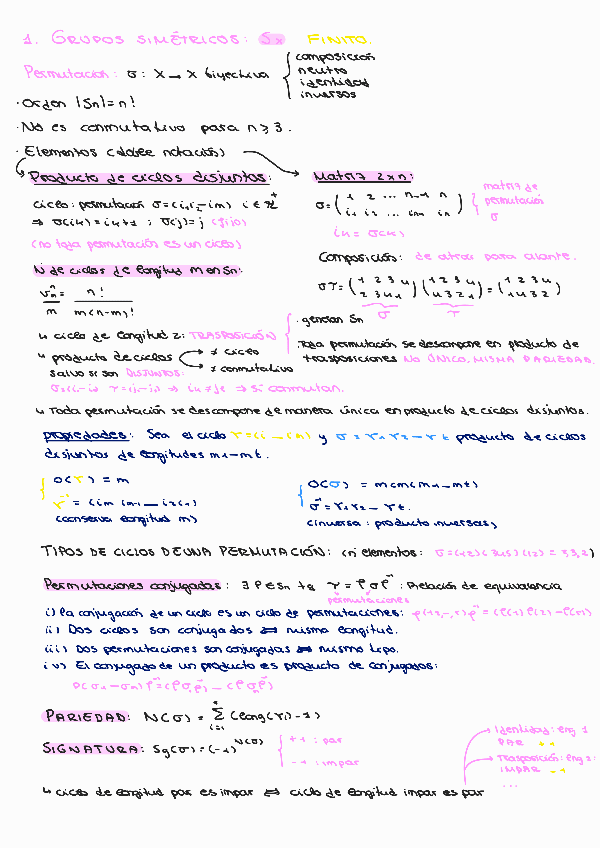 1. GRUPOS SIMÉTRICOS: Sx FINITO.
Permutación: σ: X → X biyectiva { composición
neutro
identidad
inversos
· Orden |Sn| = n!
· No es conmutativo para n ≥ 3.
· Elementos (doble notación)
Producto de ciclos disjuntos:
ciclo: permutación σ = (i1 i2 … im) i ∈ Z+
⇒ σ(ik) = ik+1 ; σ(j) = j (fijo)
(no toda permutación es un ciclo)
Nº de ciclos de longitud m en Sn:
Vn^m / m = n! / m(n-m)!
↳ ciclo de longitud 2: TRASPOSICIÓN
↳ producto de ciclos
≠ ciclo
≠ conmutativo
salvo si son DISJUNTOS:
⇒ ik ≠ je ⇒ sí conmutan.
Matriz 2xn:
σ = ( 1 2 ... n-1 n
i1 i2 ... im in )
matriz de
permutación
σ
ik = σ(k)
Composición: de atrás para alante.
στ = ( 1 2 3 4 ) ( 1 2 3 4 ) = ( 1 2 3 4 )
2 3 4 1 4 3 2 1 1 4 3 2
σ τ
· generan Sn
· Toda permutación se descompone en producto de
trasposiciones NO ÚNICO, MISMA PARIEDAD.
↳ Toda permutación se descompone de manera única en producto de ciclos disjuntos.
propiedades: Sea el ciclo γ = (i1 … im) y σ = γ1 γ2 … γt producto de ciclos
disjuntos de longitudes m1 … mt.
O(γ) = m
γ^-1 = (im im-1 … i2 i1)
(conserva longitud m)
O(σ) = mcm(m1 … mt)
σ^-1 = γ1 γ2 … γt.
(inversa: producto inversas)
TIPOS DE CICLOS DE UNA PERMUTACIÓN: (nº elementos:
Permutaciones conjugadas: ∃ρ ∈ Sn tq γ = ρσρ^-1 : Relación de equivalencia
permutaciones
i) la conjugación de un ciclo es un ciclo de permutaciones: ρ(1, 2, …, r)ρ^-1 = (ρ(1) ρ(2) … ρ(r))
ii) Dos ciclos son conjugados ⟺ misma longitud.
iii) Dos permutaciones son conjugadas ⟺ mismo tipo.
iv) El conjugado de un producto es producto de conjugados:
ρ(σ1 … σn)ρ^-1 = (ρσ1ρ^-1) … (ρσnρ^-1)
PARIEDAD: N(σ) = Σ (long(γi) - 1)
i=1
SIGNATURA: Sg(σ) = (-1)^N(σ) { +1 : par
-1 : impar
Identidad: long 1
PAR +1
Trasposición: long 2:
IMPAR -1
...
↳ ciclo de longitud par es impar ⟺ ciclo de longitud impar es par